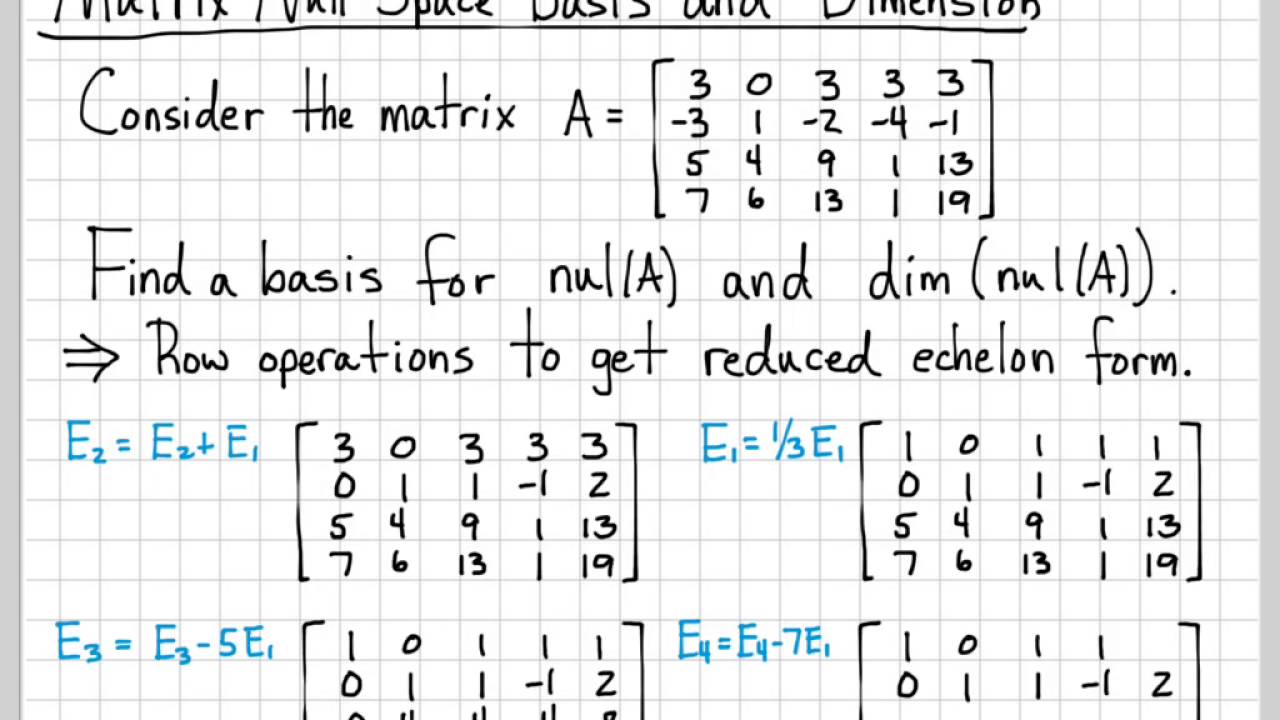 Matrix Null Space Basis and Dimension
Consider the matrix A = [ 3 0 3 3 3
-3 1 -2 -4 -1
5 4 9 1 13
7 6 13 1 19 ]
Find a basis for nul(A) and dim(nul(A)).
⇒ Row operations to get reduced echelon form.
E₂ = E₂ + E₁ [ 3 0 3 3 3
0 1 1 -1 2
5 4 9 1 13
7 6 13 1 19 ]
E₁ = 1/3 E₁ [ 1 0 1 1 1
0 1 1 -1 2
5 4 9 1 13
7 6 13 1 19 ]
E₃ = E₃ - 5E₁ [ 1 0 1 1 1
0 1 1 -1 2
E₄ = E₄ - 7E₁ [ 1 0 1 1
0 1 1 -1 2